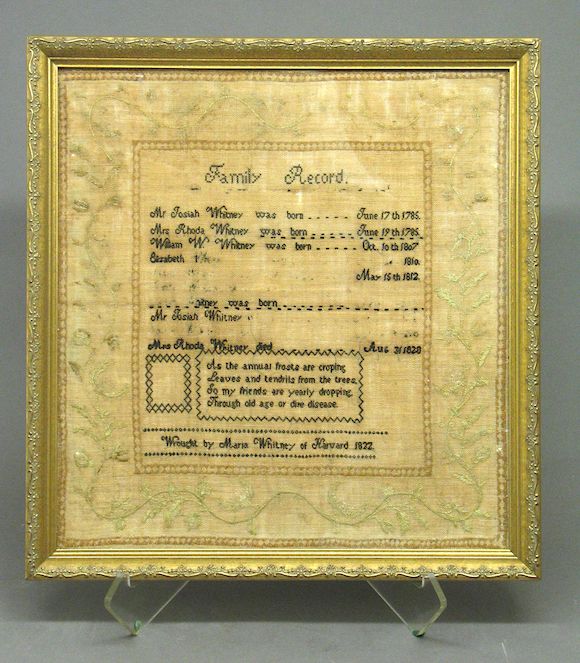 Family Record.
Mr Josiah Whitney was born June 17th 1785.
Mrs Rhoda Whitney was born June 19th 1785.
William W Whitney was born Oct. 10th 1807
Elizabeth 1810.
May 15th 1812.
was born
Mr Josiah Whitney
Mrs Rhoda Whitney died Aug 31 1828
As the annual frosts are croping
Leaves and tendrils from the trees,
So my friends are yearly dropping,
Through old age or dire disease.
Wrought by Maria Whitney of Harvard 1822.